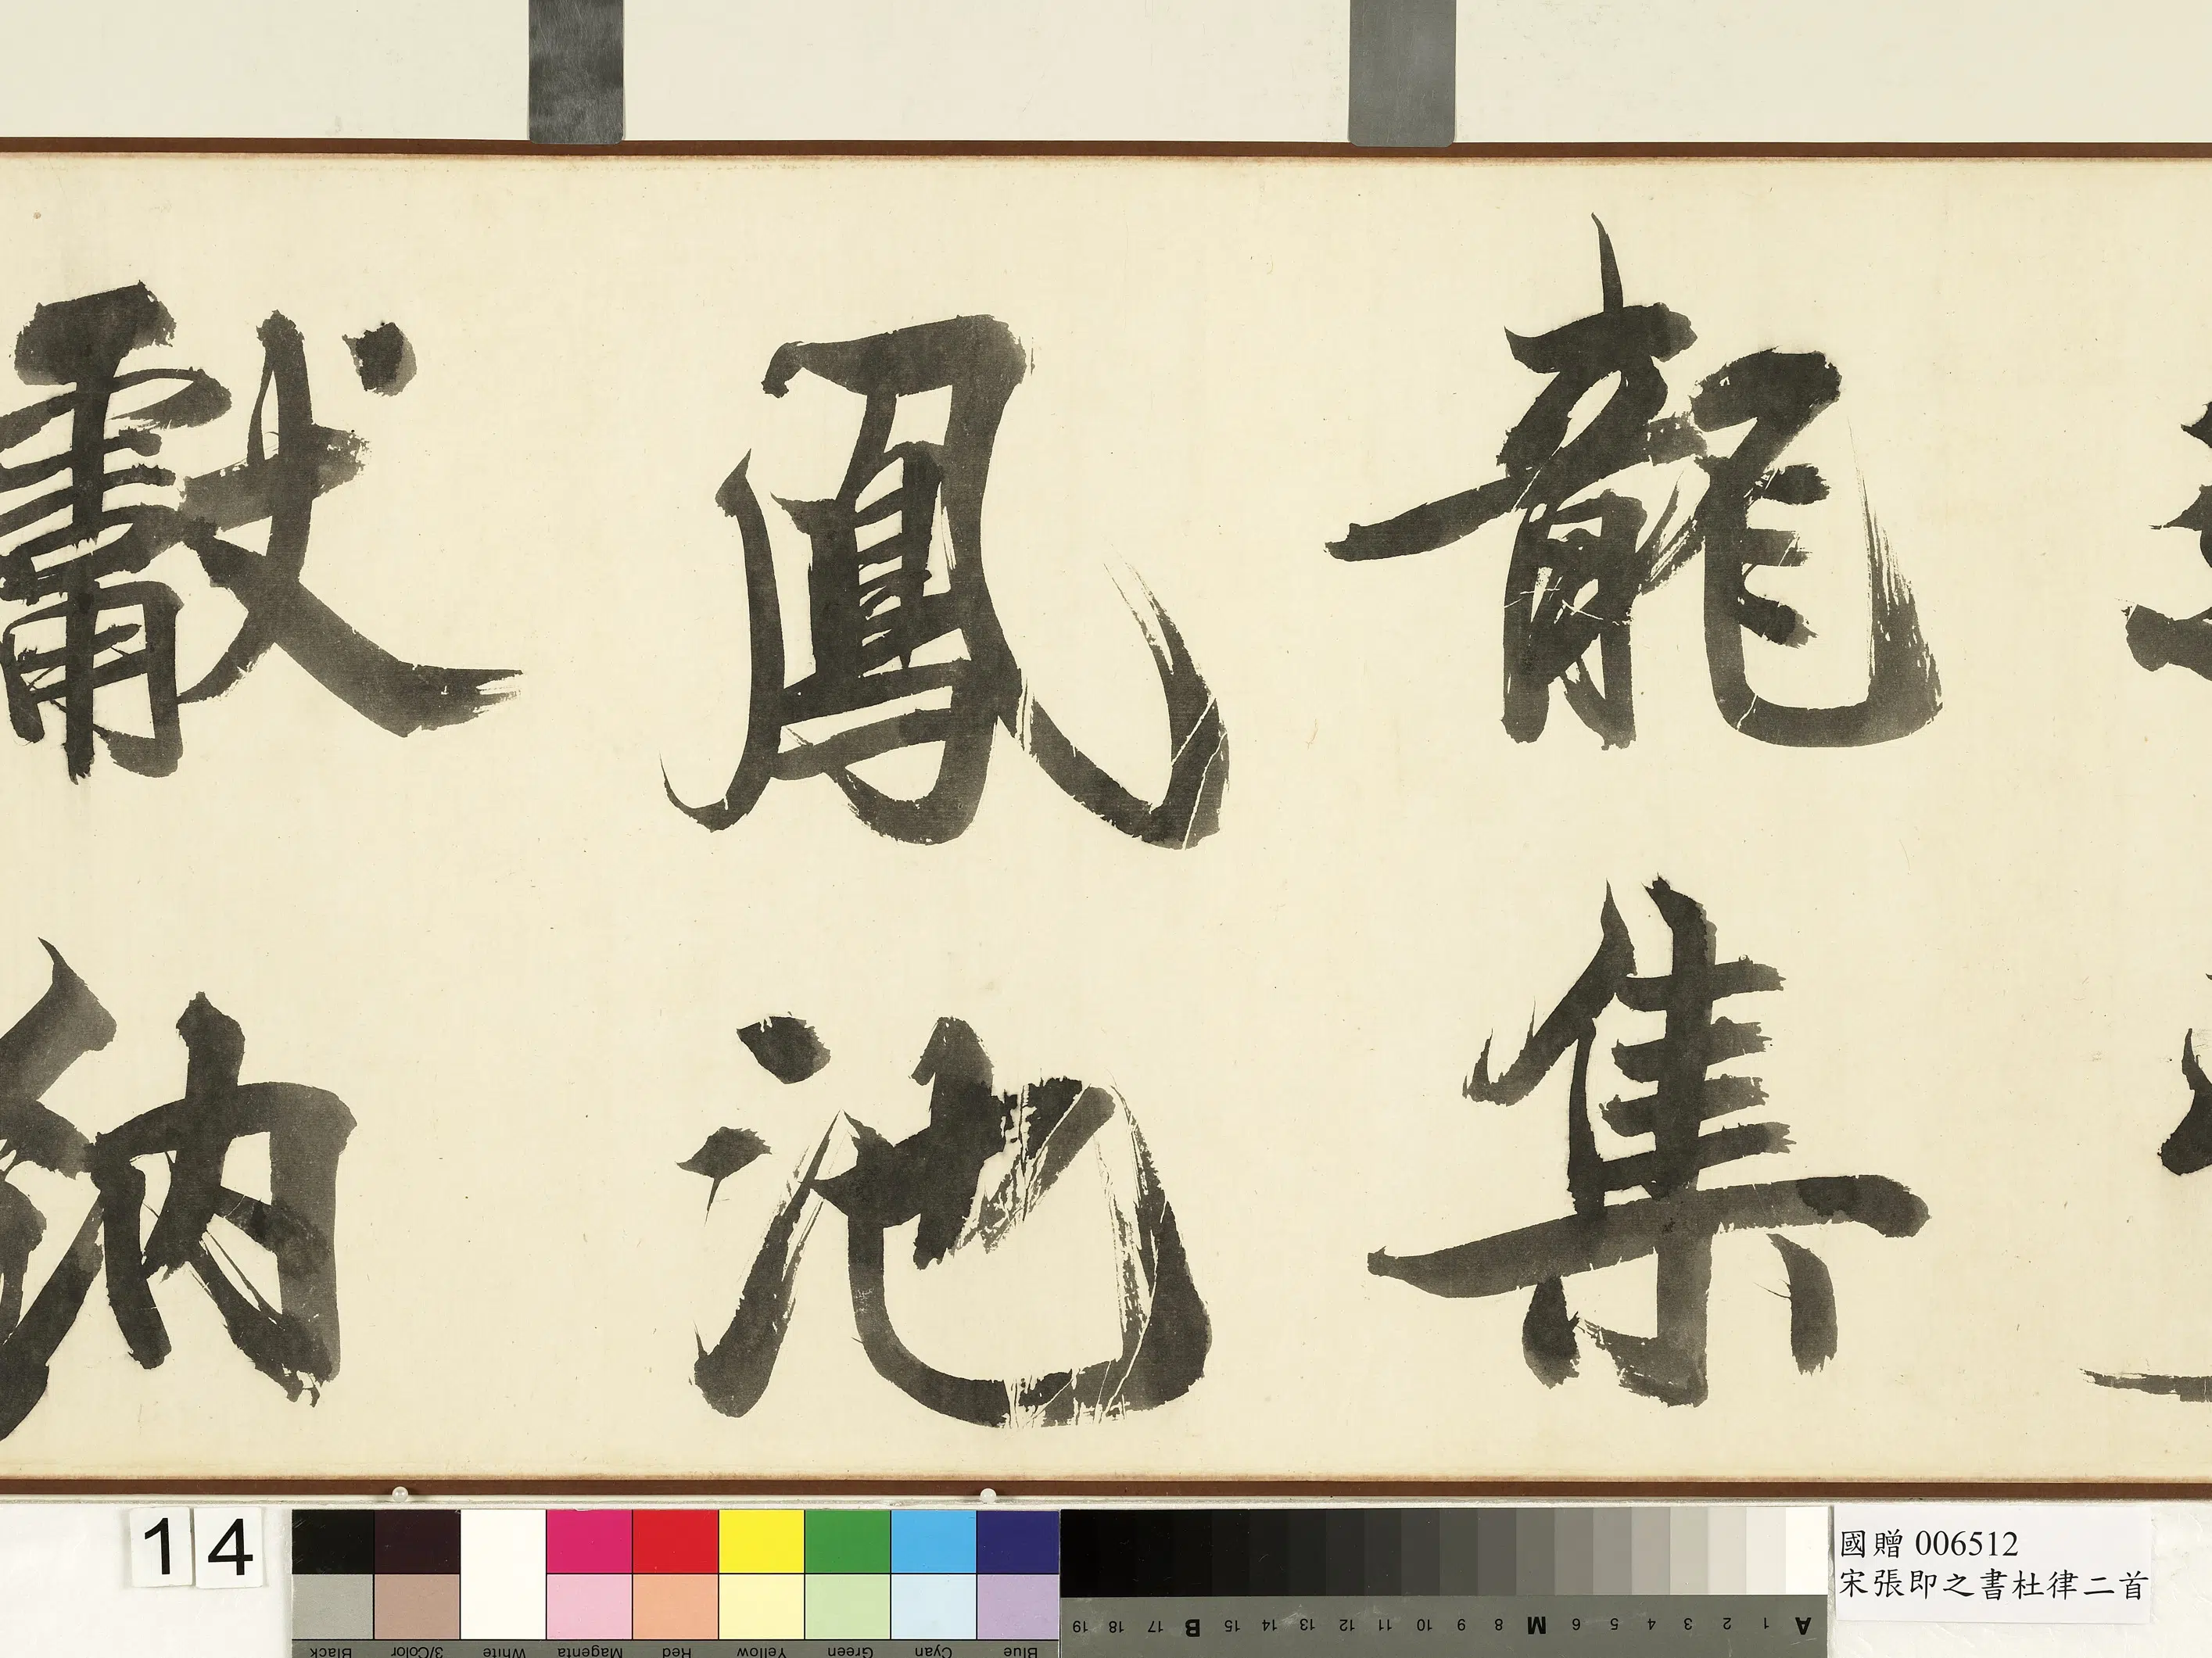 龍集
鳳池
獻納
14
國贈 006512
宋張即之書杜律二首
A 1 2 3 4 5 6 M 8 9 10 11 12 13 14 15 B 17 18 19
Blue Cyan Green Yellow Red Magenta White 3/Color Black